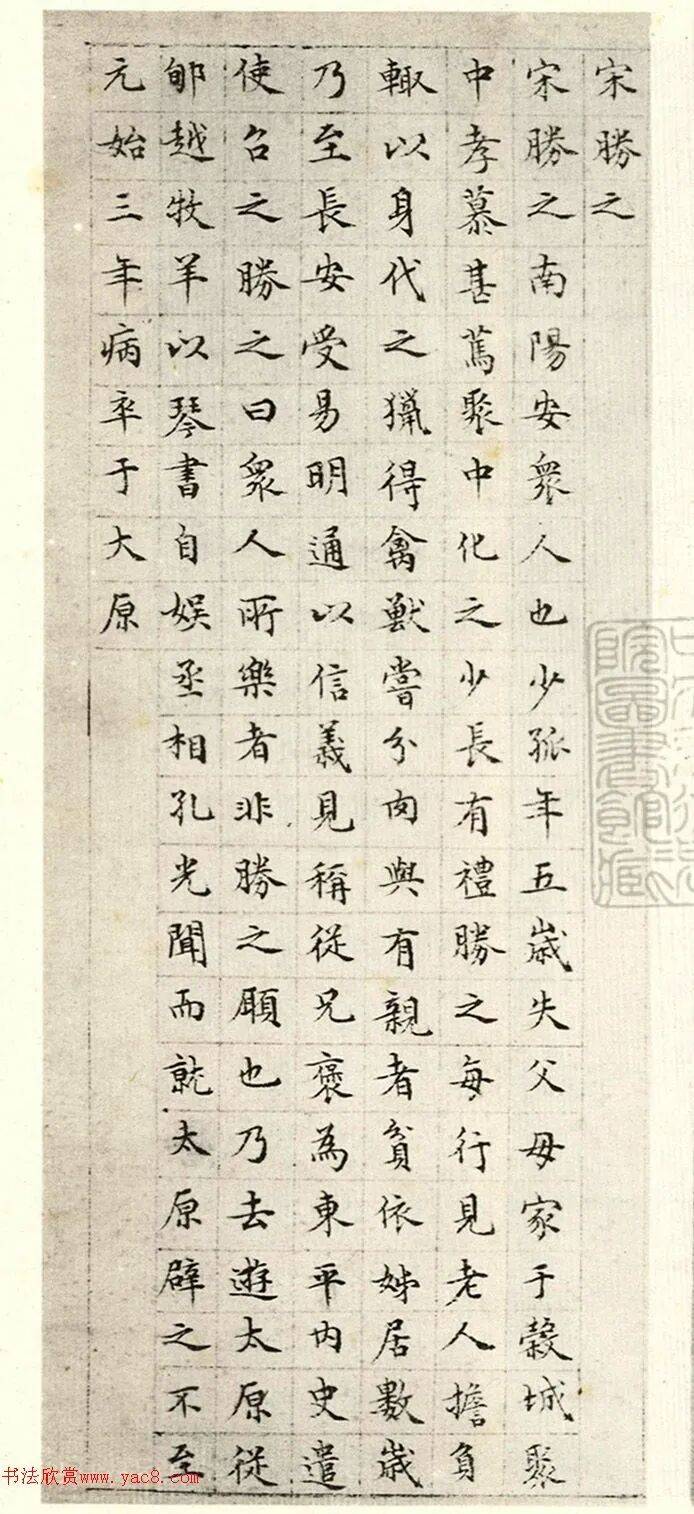 宋勝之
宋勝之南陽安衆人也少孤年五歳失父母家于穀城聚
中孝慕甚篤聚中化之少長有禮勝之每行見老人擔負
輙以身代之獵得禽獸嘗分肉與有親者貧依姊居數歳
乃至長安受易明通以信義見稱從兄褒為東平内史遣
使召之勝之曰衆人所樂者非勝之願也乃去遊太原從
郇越牧羊以琴書自娱丞相孔光聞而就太原辟之不至
元始三年病卒于太原
书法欣赏www.yac8.com